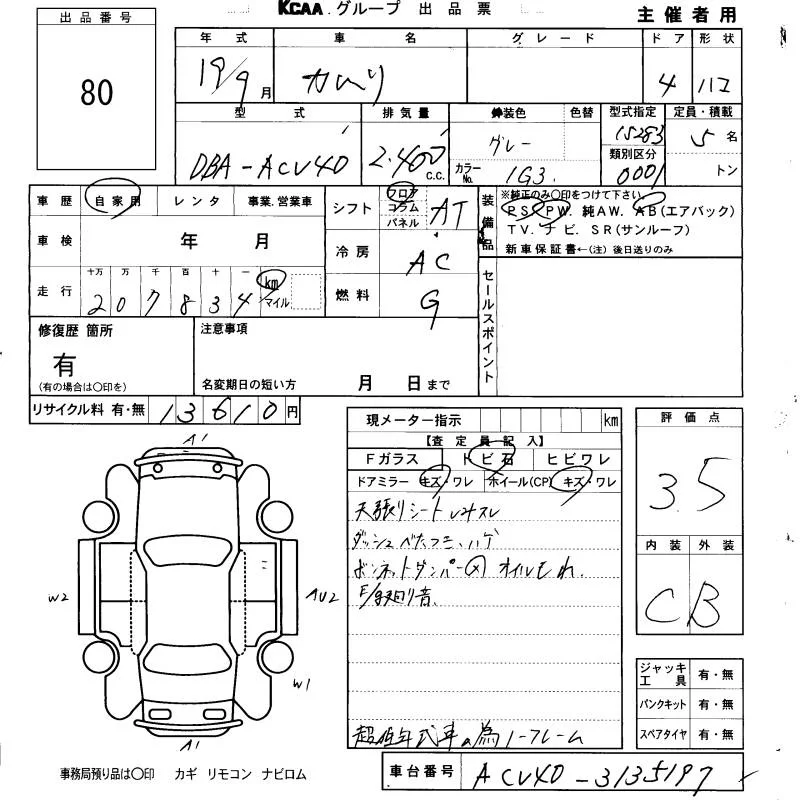 KCAA グループ 出品票
主催者用
出品番号
80
年式 車名 グレード ドア 形状
19/9月 カムリ 4 ハコ
型式 排気量 外装色 色替 型式指定 定員・積載
DBA-ACV40 2.400 c.c. グレー 15283 5名
カラーNo. 1G3 類別区分 0001 トン
車歴 自家用 レンタ 事業.営業車
車検 年 月
走行 十万 万 千 百 十 一
207834 km マイル
シフト フロア コラム パネル AT
冷房 AC
燃料 G
装備品 ※純正のみ〇印をつけて下さい
PS. PW. 純AW. AB(エアバック)
TV. ナビ. SR(サンルーフ)
新車保証書←(注) 後日送りのみ
セールスポイント
修復歴 箇所
有
(有の場合は〇印を)
注意事項
名変期日の短い方 月 日まで
リサイクル料 有・無 13610円
現メーター指示 km
【査定員記入】
Fガラス トビ石 ヒビワレ
ドアミラー キズ・ワレ ホイール(CP) キズ・ワレ
天張りシートシミスレ
ダッシュベたつき、ハゲ
オイルもれ.
異音.
超低年式車の為ノークレーム
評価点
3.5
内装 外装
C B
ジャッキ 工具 有・無
パンクキット 有・無
スペアタイヤ 有・無
A1
W2
AU2
W1
A1
事務局預り品は〇印 カギ リモコン ナビロム
車台番号 ACV40-3135197